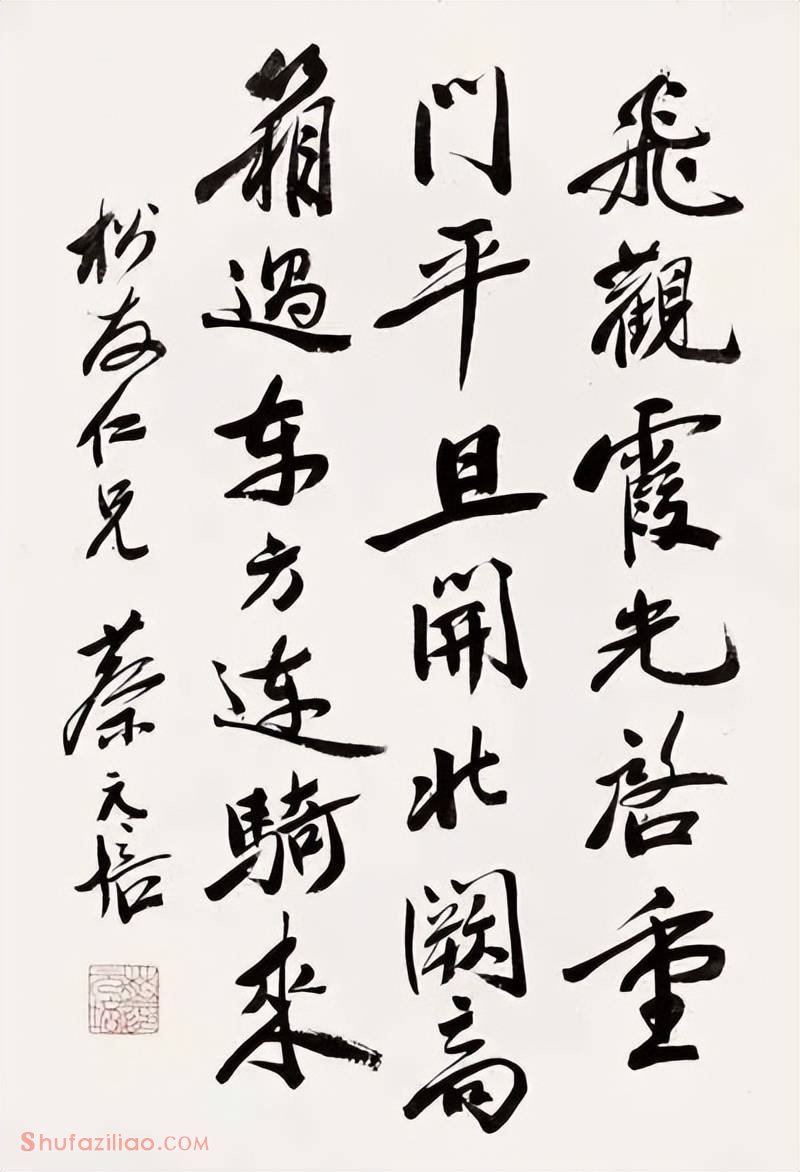 飛觀霞光啓重
門平旦開北闕高
箱過東方連騎來
松友仁兄 蔡元培
Shufaziliao.COM